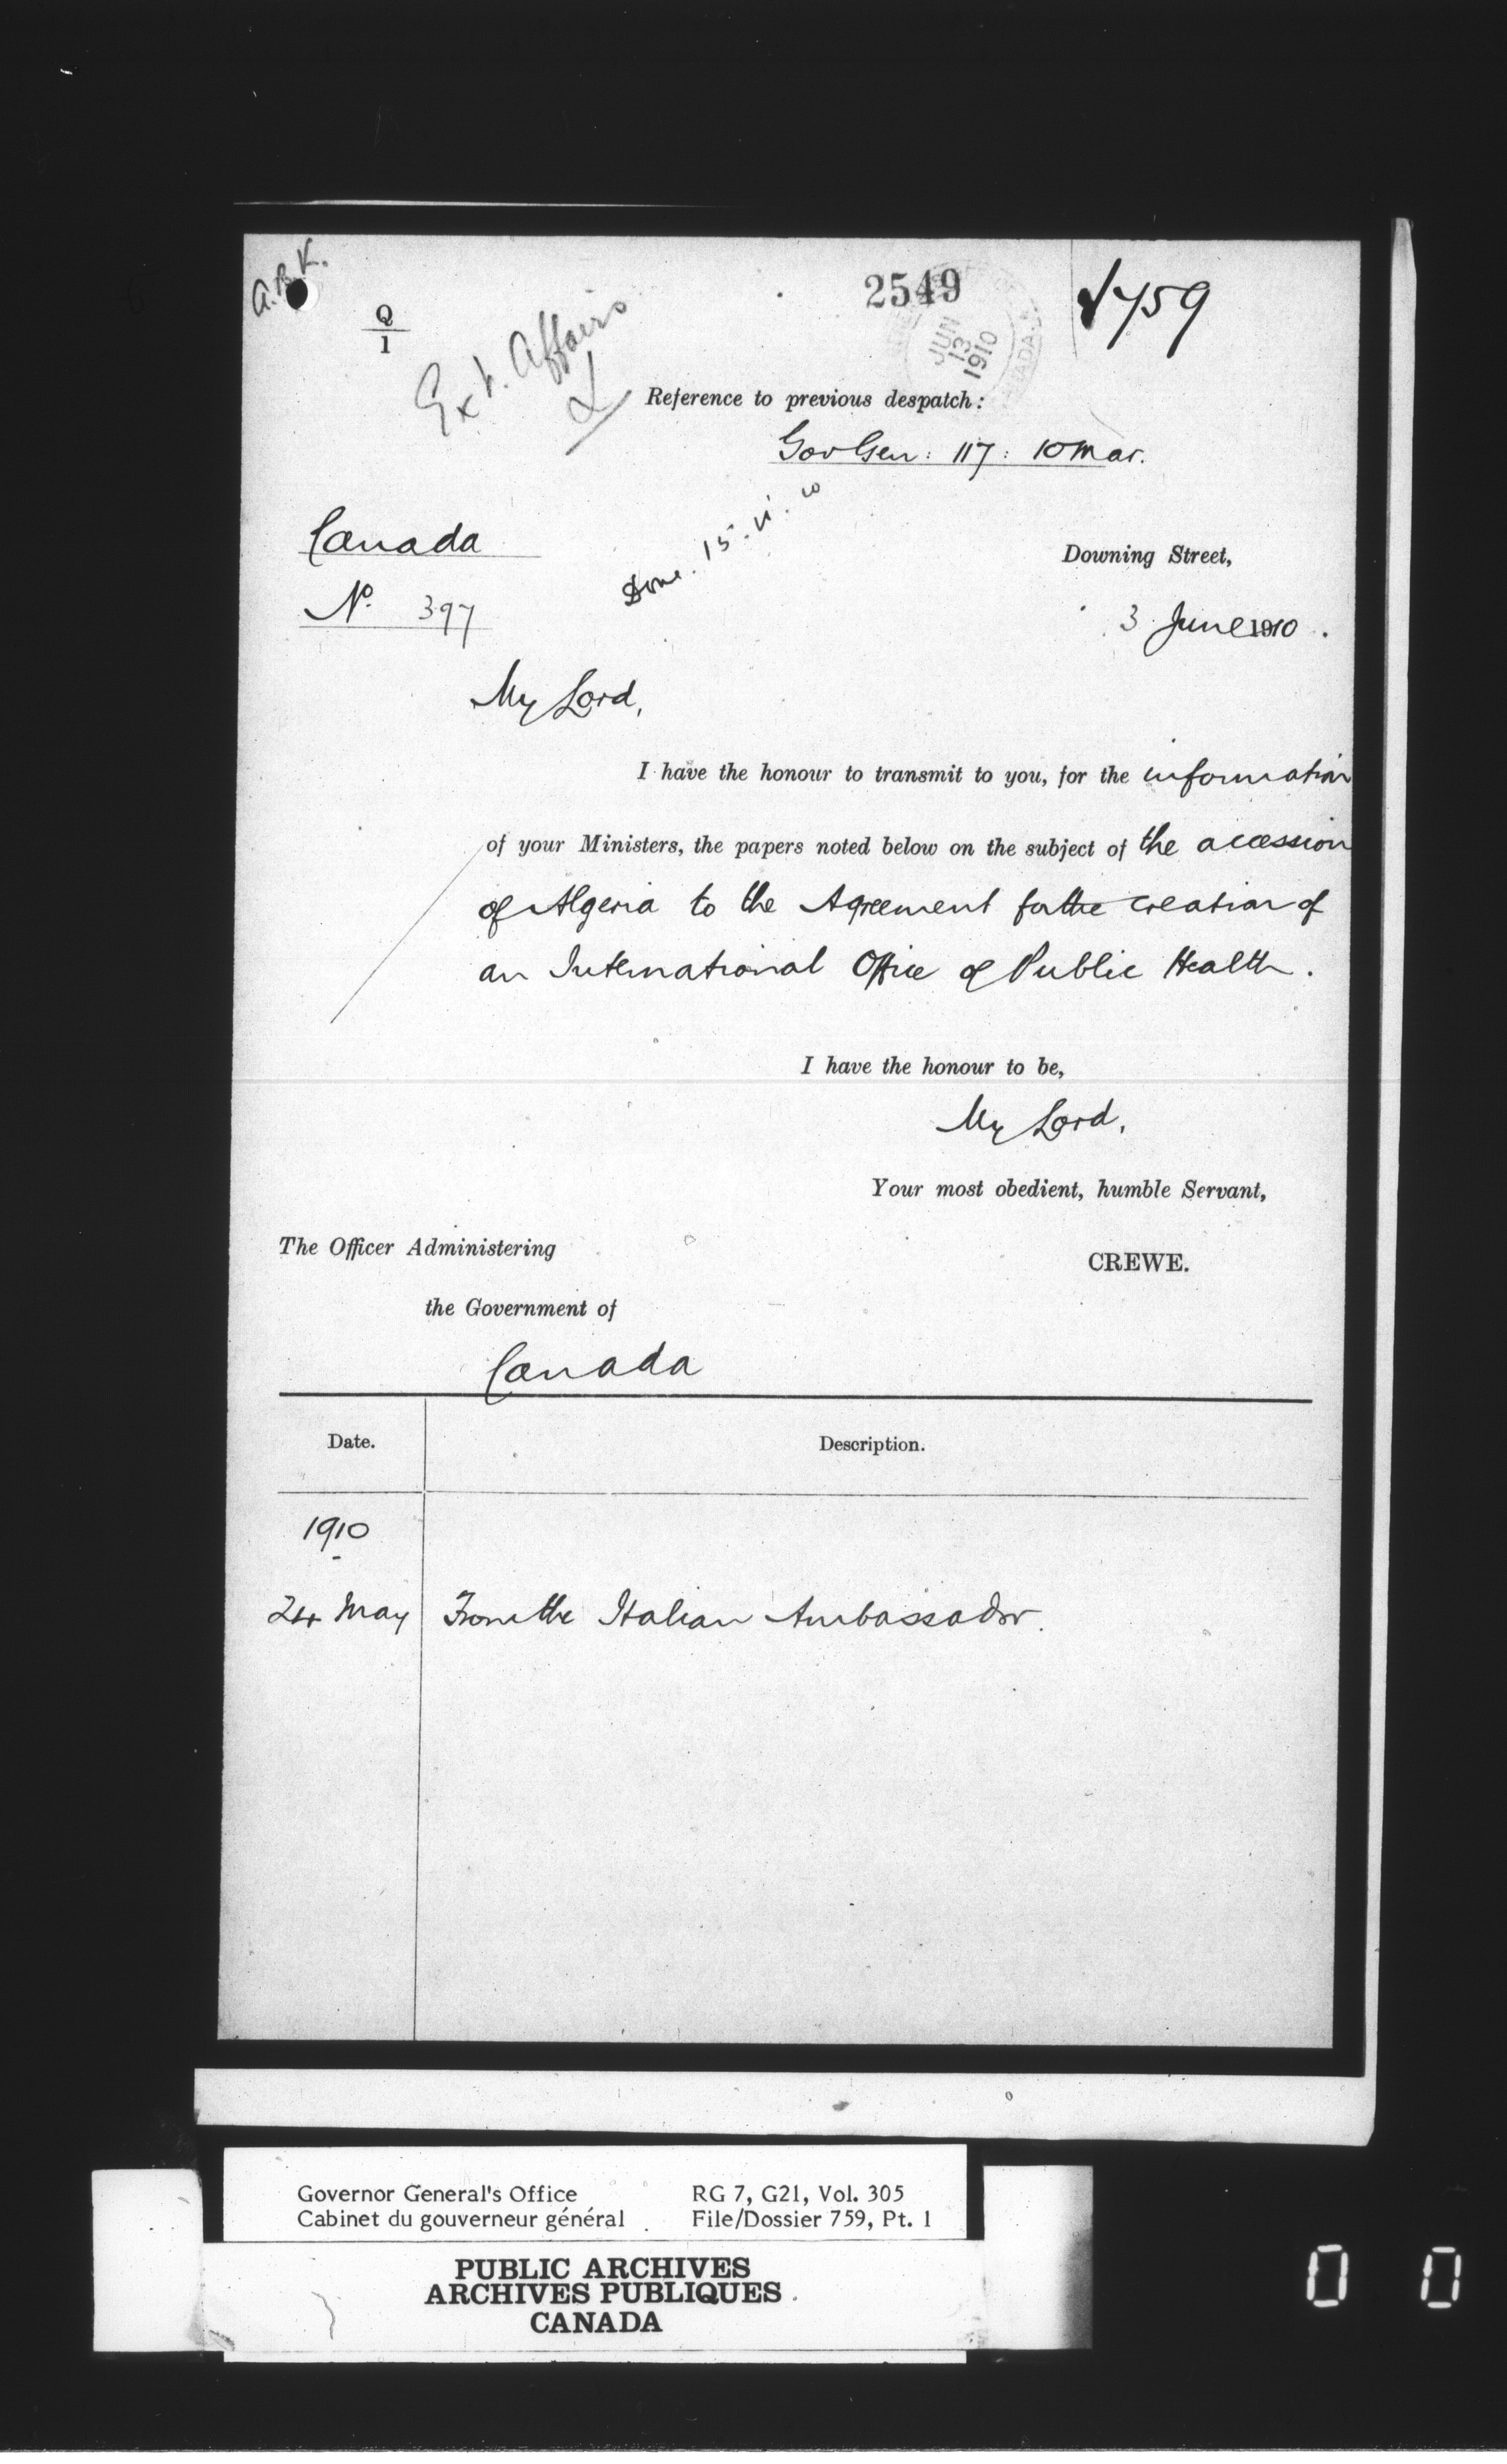 A.B.K.
Q
1
Ext. Affairs
2549
JUN
13
1910
759
Reference to previous despatch:
Gov Gen: 117: 10 Mar.
Canada
No. 397
Done. 15
Downing Street,
3 June 1910.
My Lord,
I have the honour to transmit to you, for the information
of your Ministers, the papers noted below on the subject of the accession
of Algeria to the Agreement for the creation of
an International Office of Public Health.
I have the honour to be,
My Lord,
Your most obedient, humble Servant,
The Officer Administering
CREWE.
the Government of
Canada
Date.
Description.
1910
24 May From the Italian Ambassador.
Governor General's Office RG 7, G21, Vol. 305
Cabinet du gouverneur général File/Dossier 759, Pt. 1
PUBLIC ARCHIVES
ARCHIVES PUBLIQUES
CANADA
0 0